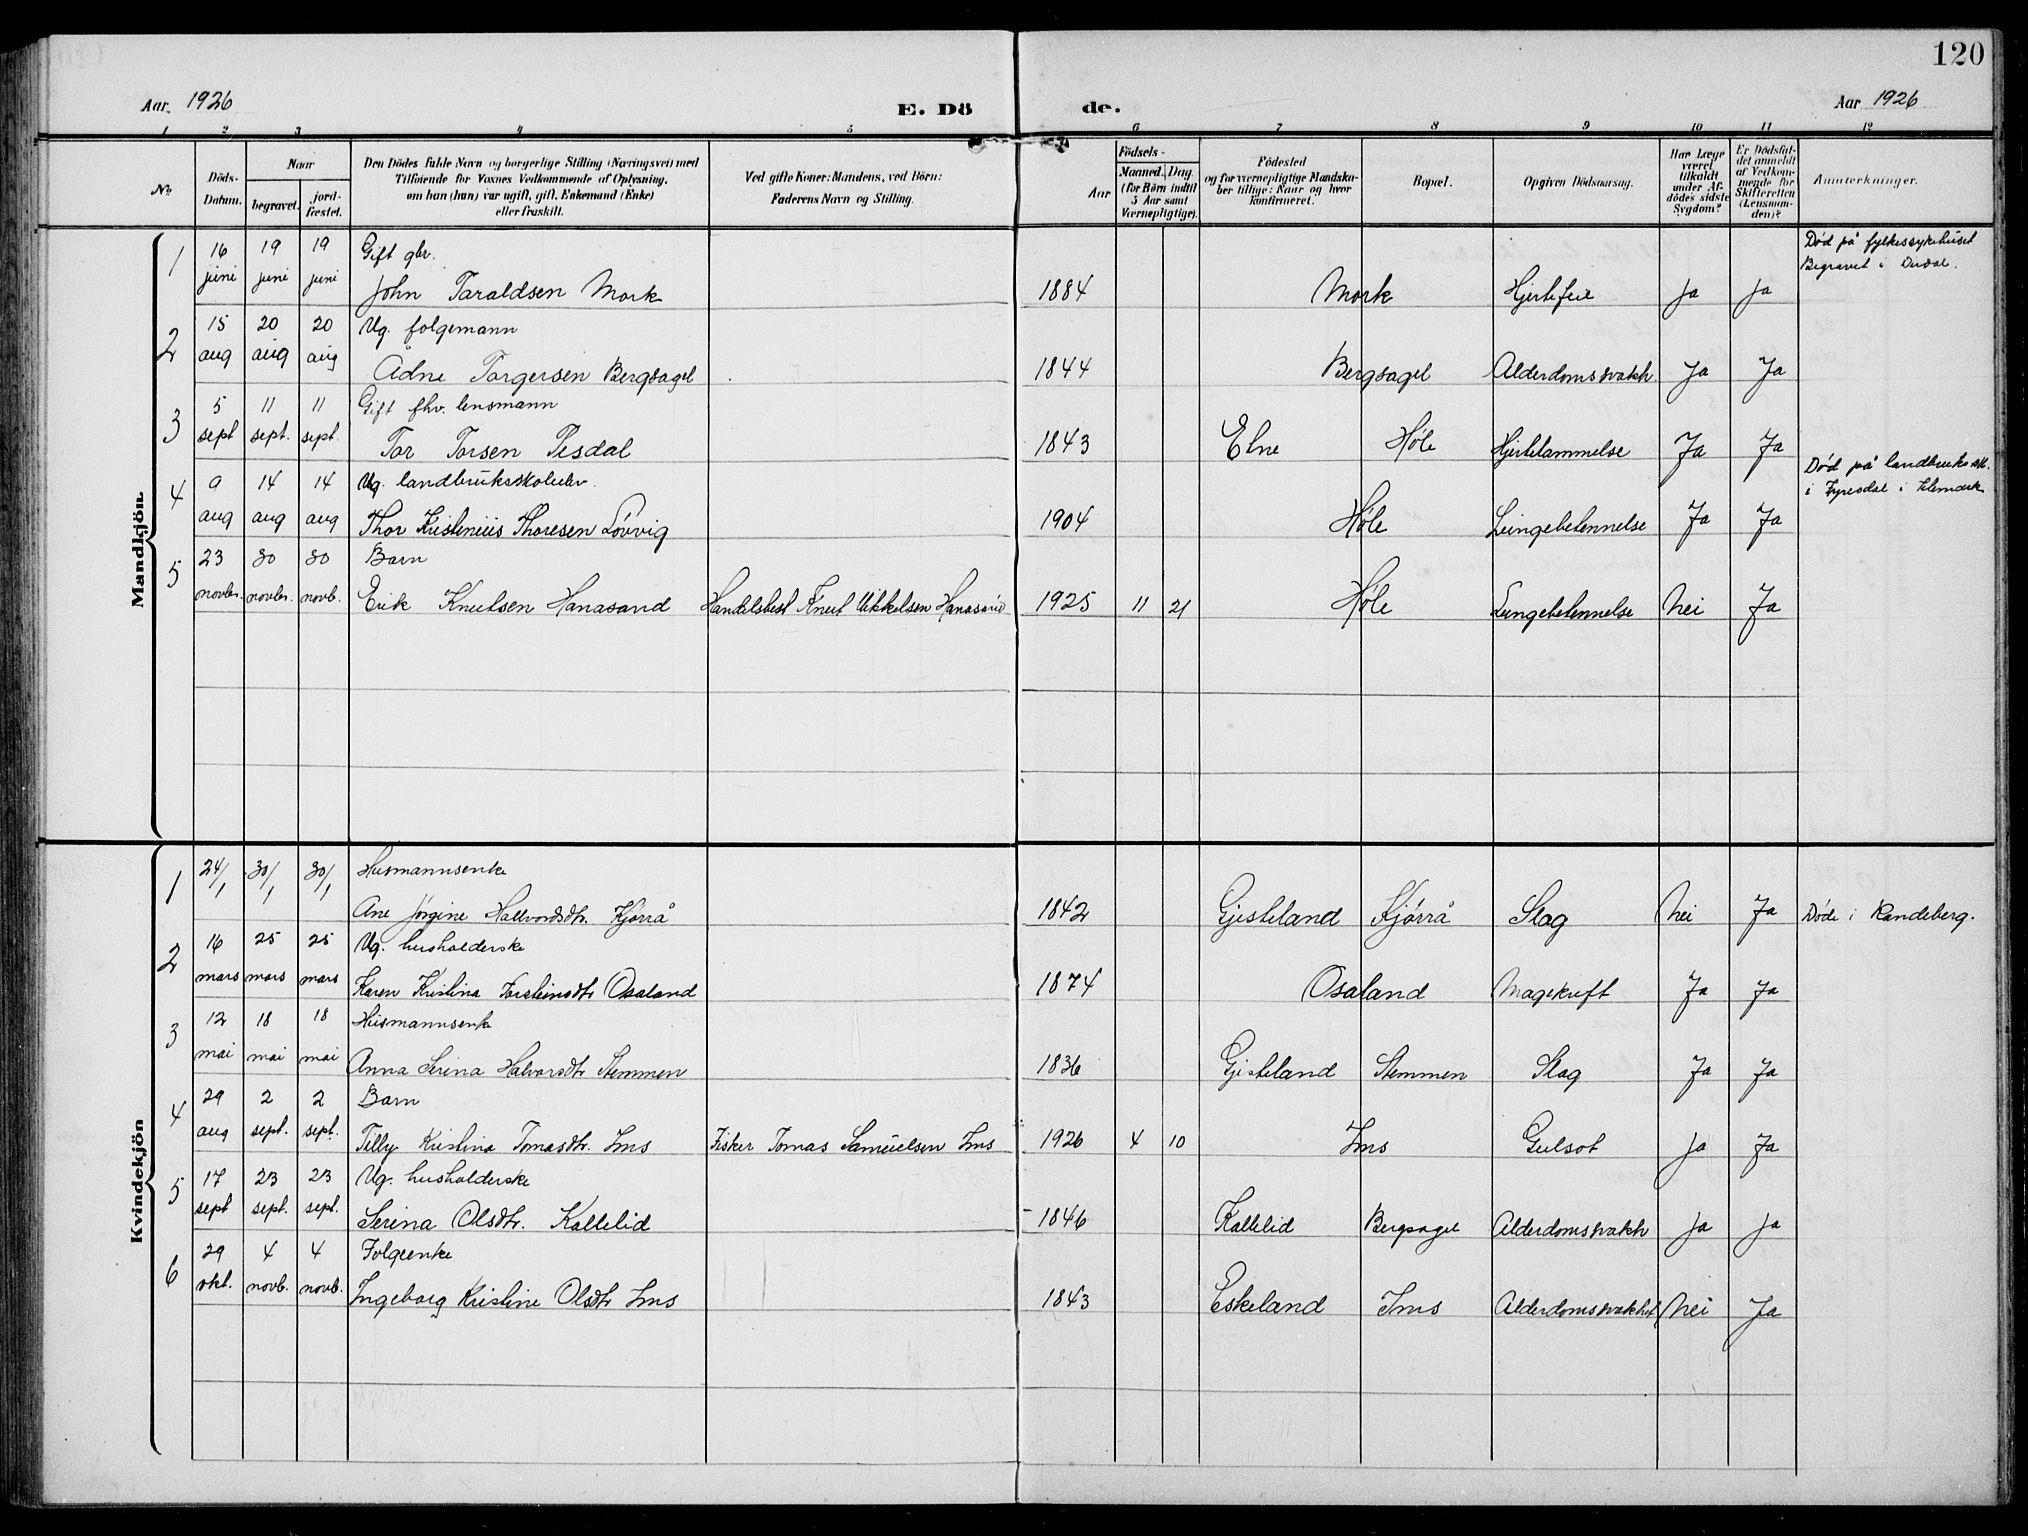 120
Aar 1926
E. Dö
de.
Aar 1926
1 2 3 4 5 6 7 8 9 10 11 12
No
Döds-Datum.
Naar
begravet.
jord-fæstet.
Den Dödes fulde Navn og borgerlige Stilling (Næringsvei) med
Tilföiende for Voxnes Vedkommende af Oplysning,
om han (hun) var ugift, gift, Enkemand (Enke)
eller fraskilt.
Ved gifte Koner: Mandens, ved Börn:
Faderens Navn og Stilling.
Födsels-
Aar
Maaned. Dag.
(for Börn indtil
5 Aar samt
Værnepligtige).
Födested
og for værnepligtige Mandska-
ber tillige: Naar og hvor
konfirmeret.
Bopæl.
Opgiven Dödsaarsag.
Har Læge
været
tilkaldt
under Af-
dödes sidste
Sygdom?
Er Dödsfal-
det anmeldt
af Vedkom-
mende for
Skifteretten
(Lensman-
den)?
Anmærkninger.
Mandkjön.
1 16 juni 19 juni 19 juni Gift gbr.
John Taraldsen Mork 1884 Mork Hjertefeil Ja Ja
Död på fylkessykehuset
Begravet i Dirdal.
2 15 aug 20 aug 20 aug Ug. folgemann
Ådne Torgersen Bergsagel 1844 Bergsagel Alderdomssvakh. Ja Ja
3 5 sept 11 sept. 11 sept. Gift fhv. lensmann
Tor Torsen Tesdal 1843 Elne Høle Hjertelammelse Ja Ja
4 9 aug 14 aug 14 aug Ug. landbruksskoleelev.
Thor Kristenius Thoresen Løvvig 1904 Høle Lungebetennelse Ja Ja
Død på landbrukssk.
i Fyresdal i Telemark
5 23 novbr. 30 novbr. 30 novb. Barn
Erik Knutsen Hanasand Handelsbest Knut Mikkelsen Hanasand 1925 11 21 Høle Lungebetennelse Nei Ja
Kvindekjön
1 24/1 30/1 30/1 Husmannsenke
Ane Jørgine Hallvordsdtr. Kjørrå 1842 Gjesteland Kjørrå Slag Nei Ja Døde i Randeberg.
2 16 mars 25 mars 25 mars Ug. husholderske
Karen Kristina Torsteinsdtr Osaland 1874 Osaland Magekreft Ja Ja
3 12 mai 18 mai 18 mai Husmannsenke
Anna Serina Halvorsdtr Stemmen 1836 Gjesteland Stemmen Slag Ja Ja
4 29 aug 2 sept. 2 sept. Barn
Tilly Kristina Tomasdtr. Ims Fisker Tomas Samuelsen Ims 1926 4 10 Ims Gulsot Ja Ja
5 17 sept 23 sept. 23 sept. Ug. husholderske
Serina Olsdtr. Kallelid 1846 Kallelid Bergsagel Alderdomssvakh Ja Ja
6 29 okt. 4 novb. 4 novb. Folgeenke
Ingeborg Kristine Olsdtr Ims 1843 Eskeland Ims Alderdomssvakhet Nei Ja